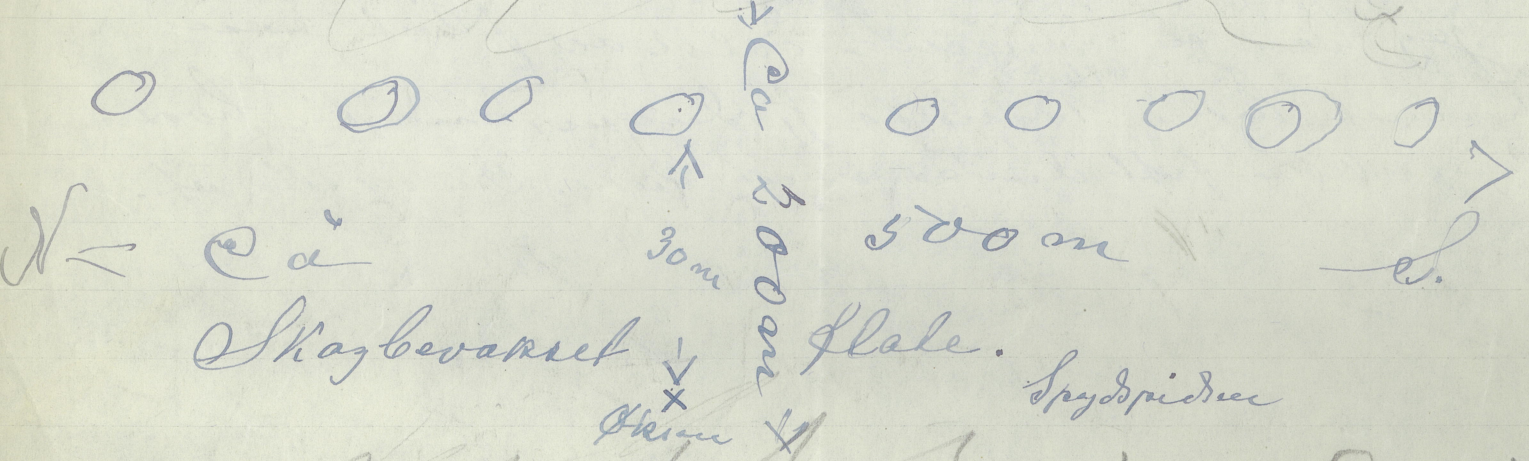 Ca 200m
N = Ca 500m S.
30m
Skogbevakset flate.
Spydspidsen
Øksen